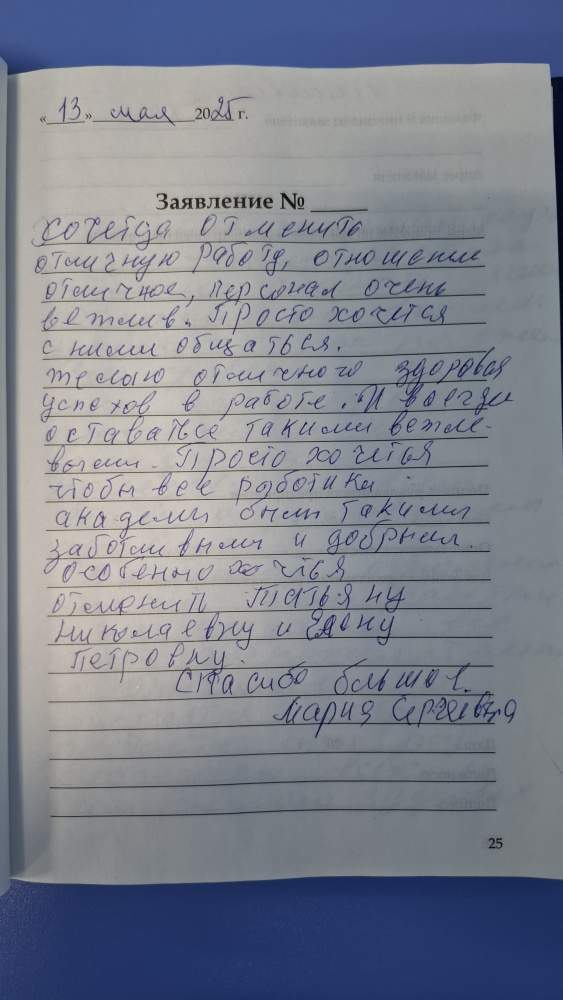 «13» мая 2025 г.
Заявление №
хочется отменить
отличную работу, отношении
отличное, персонал очень
вежлив. Просто хочется
с ними общаться.
желаю отличного здоровия
успехов в работе. И всегда
оставаться такими вежли-
выми. Просто хочтья
чтобы все работики
академи были такими
заботливыми и добрыми.
особенно хочтья
отменить Татьяну
Николаевну и
Петровну.
Спасибо большое.
Мария Сергеевна
25